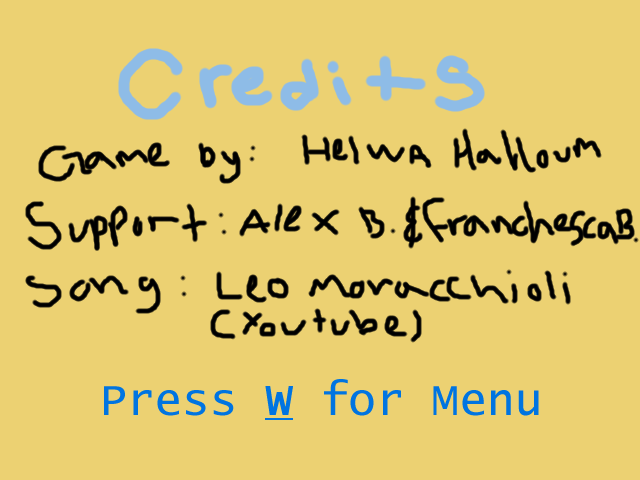 Credits
Game by: Helwa Halloum
Support: Alex B. & Franchesca B.
Song: Leo Moracchioli
(Youtube)
Press W for Menu